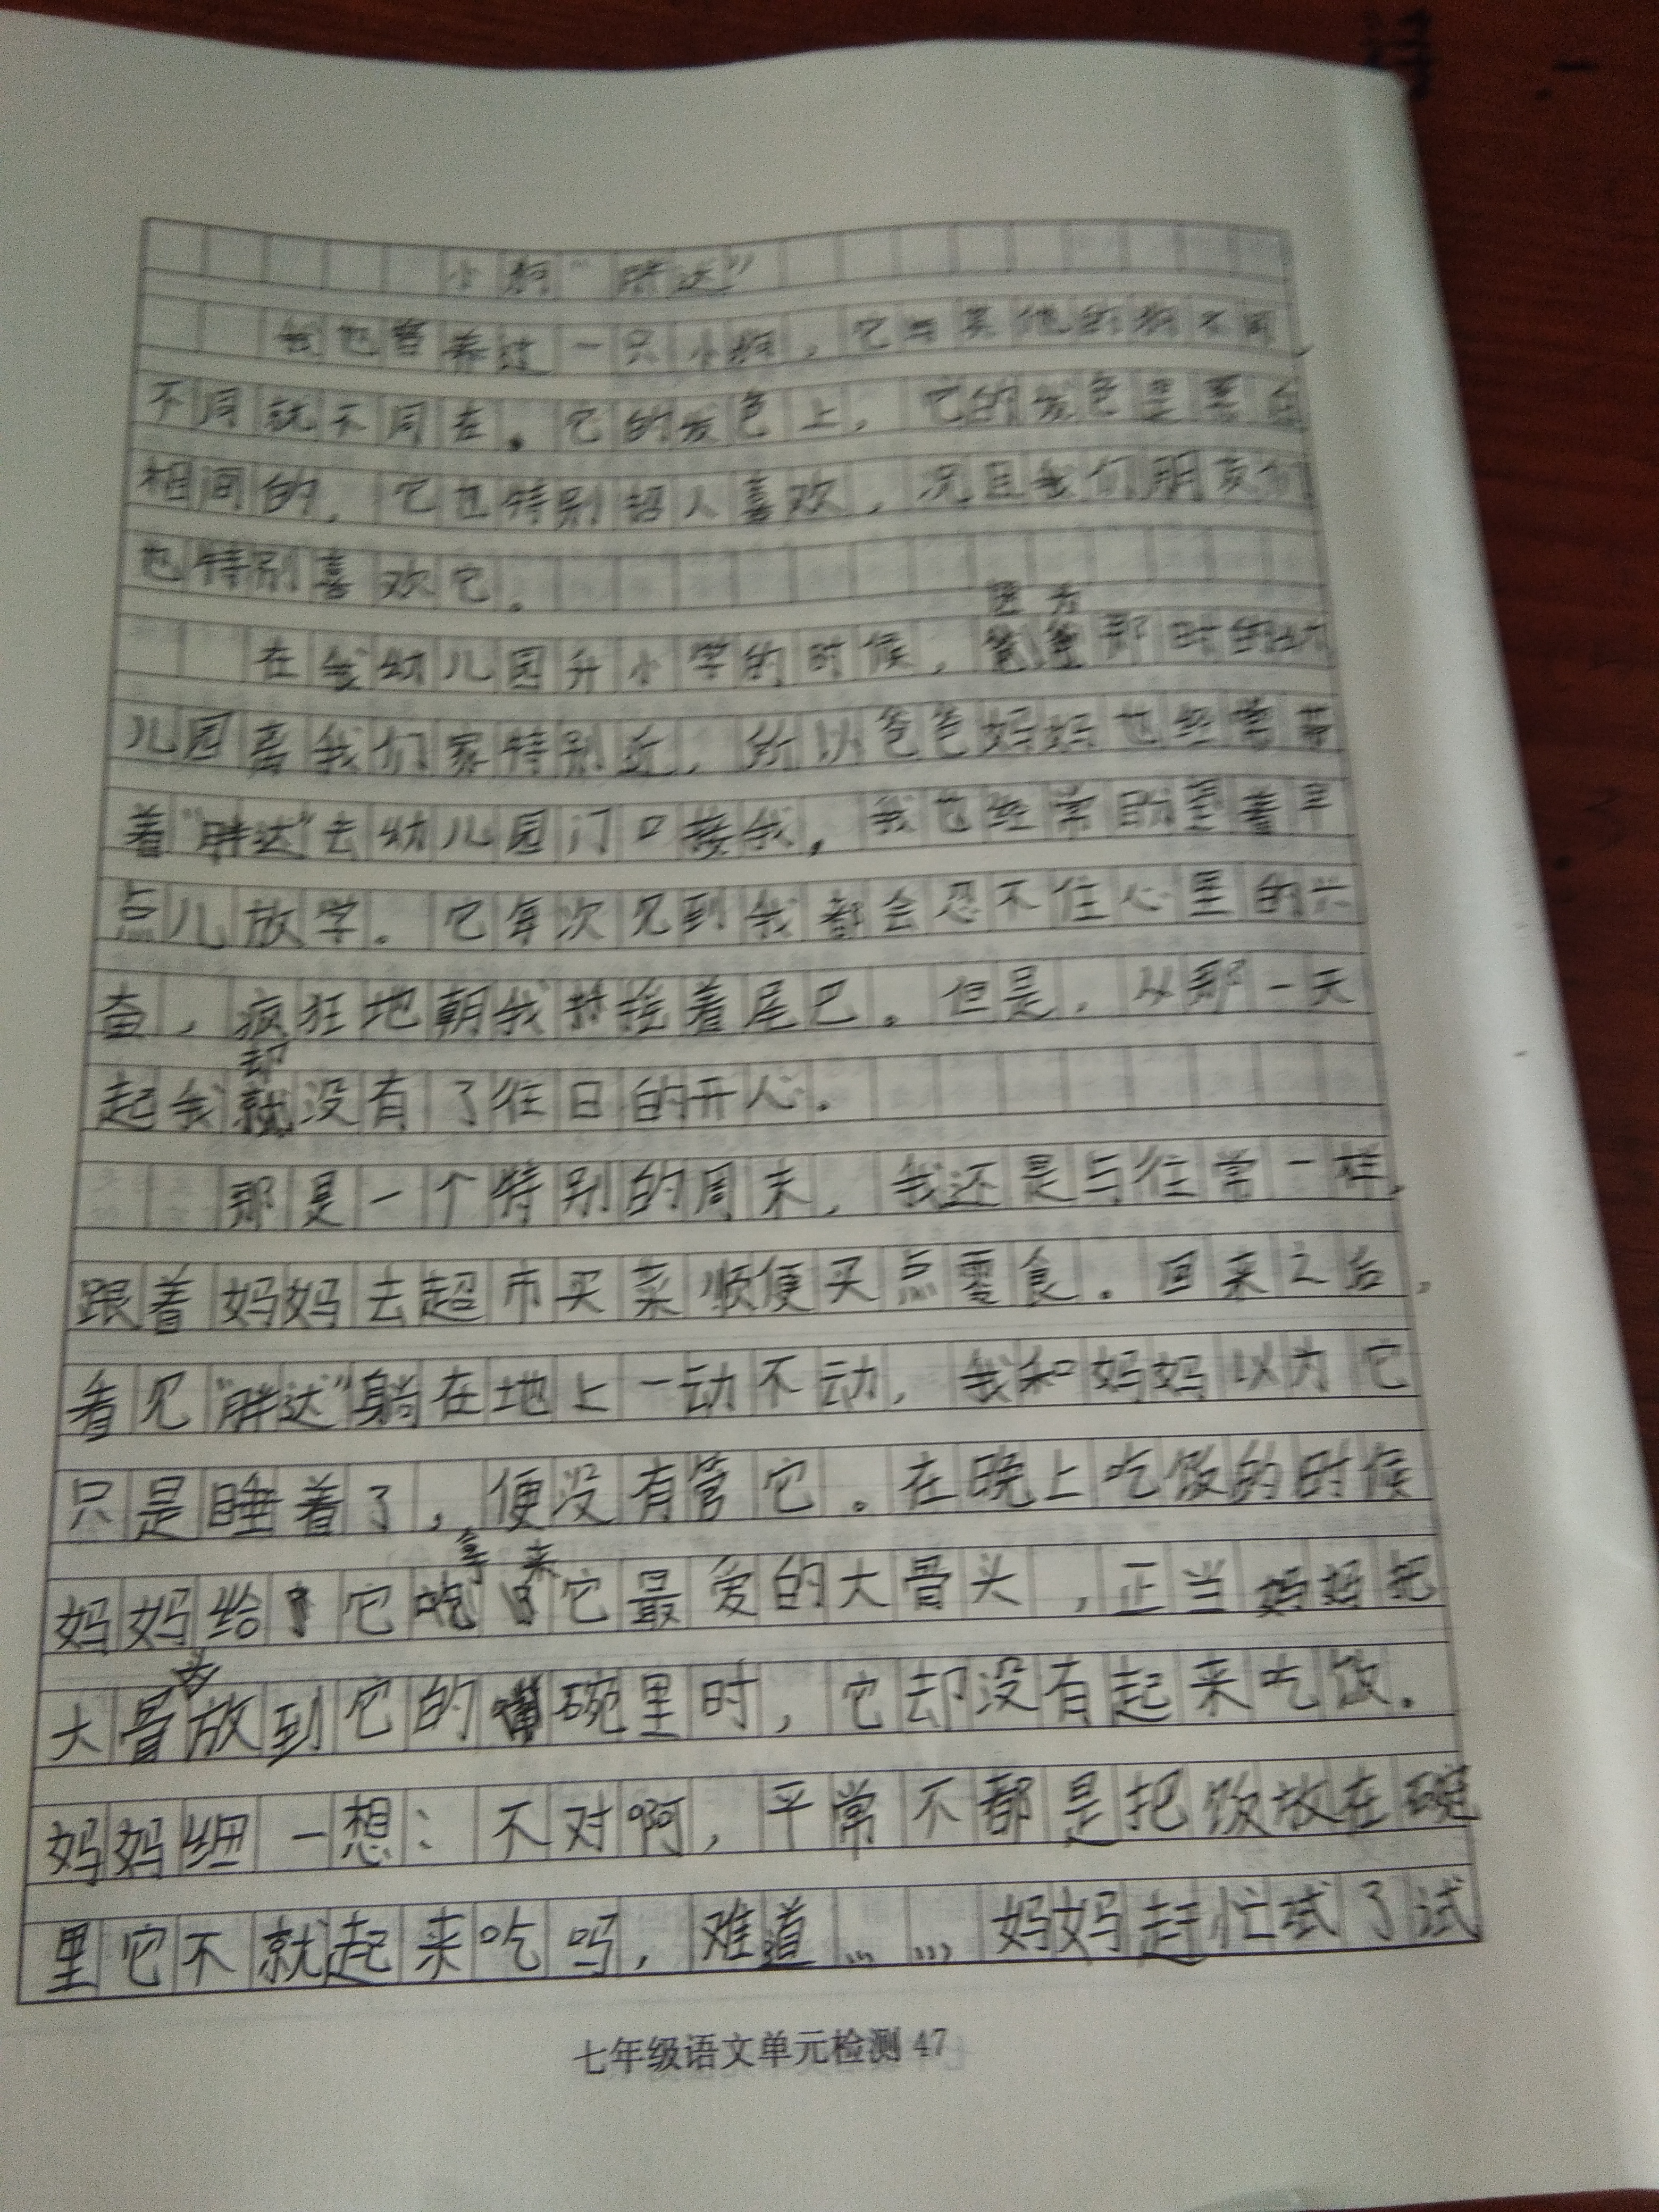 小狗“胖达”
我也曾养过一只小狗，它与其他的狗不同，
不同就不同在。它的发色上，它的发色是黑白
相间的，它也特别招人喜欢，况且我们朋友们
也特别喜欢它。
在我幼儿园升小学的时候，因为那时的幼
儿园离我们家特别近，所以爸爸妈妈也经常带
着“胖达”去幼儿园门口接我，我也经常盼望着早
点儿放学。它每次见到我都会忍不住心里的兴
奋，疯狂地朝我摇着尾巴。但是，从那一天
起我却没有了往日的开心。
那是一个特别的周末，我还是与往常一样，
跟着妈妈去超市买菜顺便买点零食。回来之后，
看见“胖达”躺在地上一动不动，我和妈妈以为它
只是睡着了，便没有管它。在晚上吃饭的时候
妈妈给它拿来它最爱的大骨头，正当妈妈把
大骨头放到它的碗里时，它却没有起来吃饭。
妈妈细一想：不对啊，平常不都是把饭放在碗
里它不就起来吃吗，难道……妈妈赶忙试了试
七年级语文单元检测 47